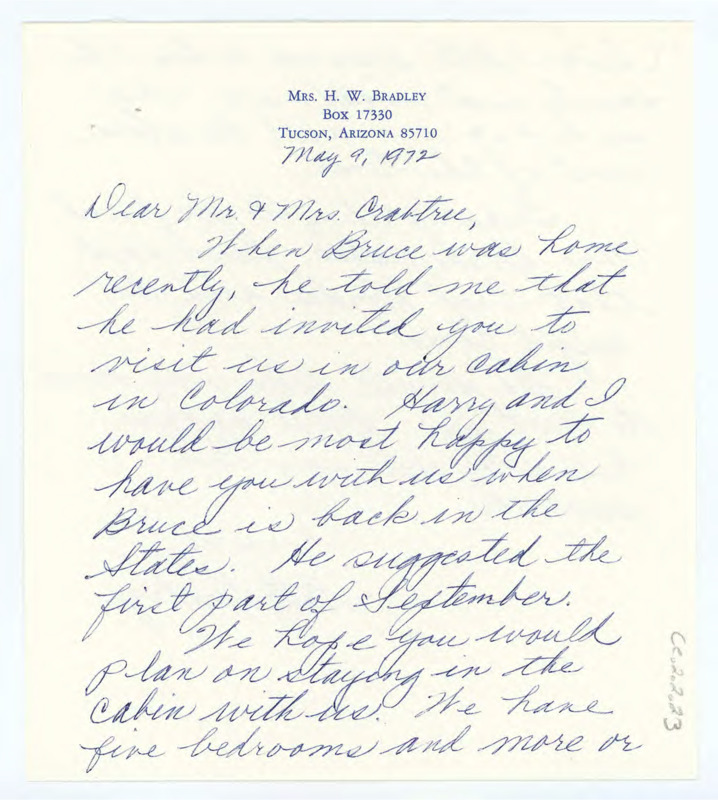 Mrs. H. W. Bradley
Box 17330
Tucson, Arizona 85710
May 9, 1972
Dear Mr. & Mrs. Crabtree,
When Bruce was home
recently, he told me that
he had invited you to
visit us in our cabin
in Colorado. Harry and I
would be most happy to
have you with us when
Bruce is back in the
States. He suggested the
first part of September.
We hope you would
plan on staying in the
cabin with us. We have
five bedrooms and more or